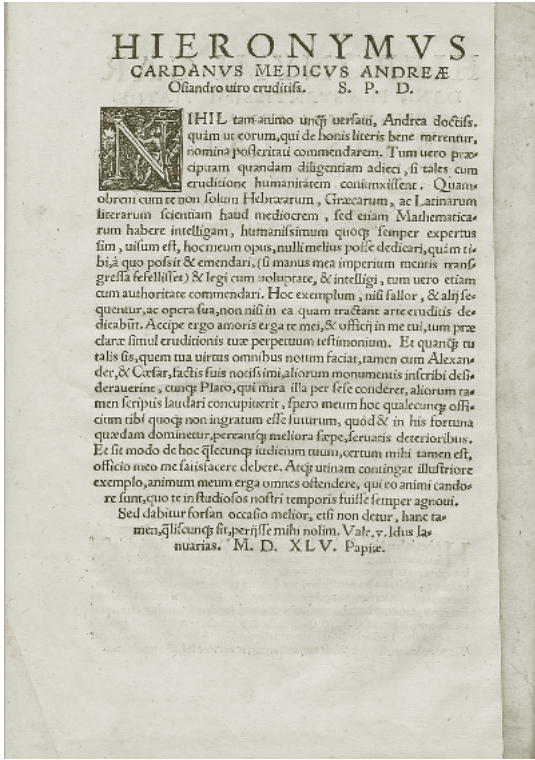 HIERONYMVS
CARDANVS MEDICVS ANDREÆ
Osiandro uiro eruditiss. S. P. D.
NIHIL tam animo unq̃ʒ versaui, Andrea doctiss.
quàm ut eorum, qui de bonis literis bene merentur,
nomina posteritati commendarem. Tum vero præ-
cipuam quandam diligentiam adieci, si tales cum
eruditione humanitatem coniunxissent. Quam-
obrem cum te non solum Hebræarum, Græcarum, ac Latinarum
literarum scientiam haud mediocrem, sed etiam Mathematica-
rum habere intelligam, humanissimum quoqʒ semper expertus
sim, uisum est, hoc meum opus, nulli melius posse dedicari, quàm ti-
bi, à quo possit & emendari, (si manus mea imperium mentis trans-
gressa fefellisset) & legi cum uoluptate, & intelligi, tum vero etiam
cum authoritate commendari. Hoc exemplum, nisi fallor, & alij se-
quentur, ac opera sua, non nisi in ea quam tractant arte eruditis de-
dicabũt. Accipe ergo amoris erga te mei, & officij in me tui, tum præ
claræ simul eruditionis tuæ perpetuum testimonium. Et quanqʒ tu
talis sis, quem tua virtus omnibus notum faciat, tamen cum Alexan-
der, & Cæsar, factis suis notissimi, aliorum monumentis inscribi desi-
derauerint, cunqʒ Plato, qui mira illa per sese conderet, aliorum ta-
men scriptis laudari concupiuerit, spero meum hoc qualecunqʒ offi-
cium tibi quoqʒ non ingratum esse futurum, quòd & in his fortuna
quædam dominetur, pereantqʒ meliora sæpe, seruatis deterioribus.
Et sit modo de hoc q̃lecunqʒ iudicium tuum, certum mihi tamen est,
officio meo me satisfacere debere. Atqʒ utinam contingat illustriore
exemplo, animum meum erga omnes ostendere, qui eo animi cando-
re sunt, quo te in studiosos nostri temporis fuisse semper agnoui.
Sed dabitur forsan occasio melior, etsi non detur, hanc ta-
men, q̃liscunqʒ sit, perijsse mihi nolim. Vale. v. Idus Ia-
nuarias. M. D. XLV. Papiæ.